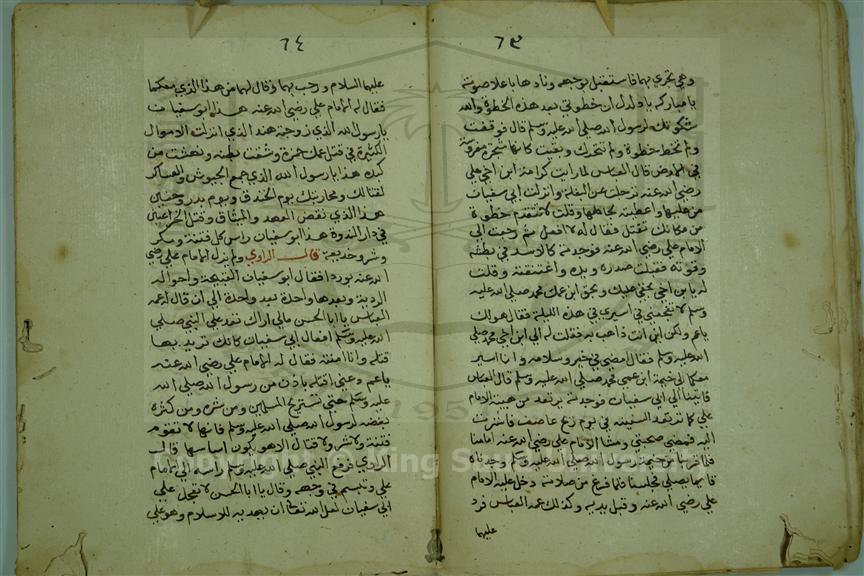 ٦٣
وهي تجري بهما فاستقبل بوجهه وناداها باعلا صوته
يا مباركه يا دلدل ان خطوتي بعد هذه الخطوة والله
شكوتك لرسول الله صلى الله عليه وسلم قال فوقفت
ولم تخط خطوة ولم تتحرك وبقيت كانها شجرة مغروسة
في الارض قال العباس لما رايت كرامة ابن اخي علي
رضي الله عنه نزلت عن البغلة وانزلت ابي سفيان
من عليها واعطيته لجامها وقلت لا تتقدم خطوة
من مكانك تقتل فقال له لا افعل ثم رحت الى
الامام علي رضي الله عنه فوجدته كالاسد في بطشه
وقوته فقبلت صدره ويده واعتنقته وقلت
له يا بن اخي بحقي عليك وبحق ابن عمك محمد صلى الله عليه
وسلم لا تفجعني في اسيري في هذه الليلة فقال هو لك
يا عم ولكن اين انت ذاهب به فقلت له الى ابن اخي محمد صلى
الله عليه وسلم فقال امضي في خير وسلامه وانا اسير
معكما الى خيمة ابن عمي محمد صلى الله عليه وسلم قال العباس
فاتينا الى ابي سفيان فوجدته يرتعد من هيبة الامام
علي كما ترتعد السفينه في يوم ريح عاصف فاشرت
اليه فمضى صحبتي ومشا الامام علي رضي الله عنه امامنا
فلما قربنا من خيمة رسول الله صلى الله عليه وسلم وجدناه
قايما يصلي فجلسنا فلما فرغ من صلاته دخل عليه الامام
علي رضي الله عنه وقبل يديه وكذلك عمه العباس فرد
عليهما
٦٤
عليهما السلام ورحب بهما وقال لهما من هذا الذي معكما
فقال له الامام علي رضي الله عنه هذا ابو سفيان
يا رسول الله الذي زوجته هند الذي انزلت الاموال
الكثيرة في قتل عمك حمزة وشقت بطنه ونهشت من
كبده هذا يا رسول الله الذي جمع الجيوش والعساكر
لقتالك ومحاربتك يوم الخندق ويوم بدر وحنين
هذا الذي نقض العهد والميثاق وقتل
في دار الندوة هذا ابو سفيان راس كل فتنة ومكر
وشر وخديعة قال الراوي ولم يزل الامام علي رضي
الله عنه يورد افعال ابو سفيان القبيحة واحواله
الردية ويعدها واحدة بعد واحدة الى ان قال له عمه
العباس يا ابا الحسن مالي اراك تعد على النبي صلى
الله عليه وسلم افعال ابي سفيان كانك تريد بها
قتله وانا امنته فقال له الامام علي رضي الله عنه
يا عم دعني اقتله باذن من رسول الله صلى الله
عليه وسلم حتى تستريح المسلمين من شره ومن كثرة
بغضه لرسول الله صلى الله عليه وسلم فانها لا تقوم
فتنة ولا شر ولا قتال الا هو يكون اساسها قال
الراوي فرفع النبي صلى الله عليه وسلم راسه الى الامام
علي وتبسم في وجهه وقال يا ابا الحسن لا تعجل على
ابي سفيان لعل الله تعالى ان يهديه للاسلام وهو على